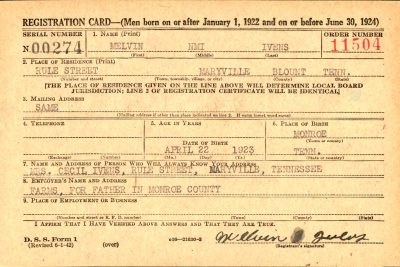 REGISTRATION CARD—(Men born on or after January 1, 1922 and on or before June 30, 1924)
SERIAL NUMBER 1. NAME (Print) ORDER NUMBER
N00274 MELVIN NMI IVENS 11504
(First) (Middle) (Last)
2. PLACE OF RESIDENCE (Print)
RULE STREET MARYVILLE BLOUNT TENN.
(Number and street) (Town, township, village, or city) (County) (State)
[THE PLACE OF RESIDENCE GIVEN ON THE LINE ABOVE WILL DETERMINE LOCAL BOARD
JURISDICTION; LINE 2 OF REGISTRATION CERTIFICATE WILL BE IDENTICAL]
3. MAILING ADDRESS
SAME
(Mailing address if other than place indicated on line 2. If same insert word same)
4. TELEPHONE 5. AGE IN YEARS 6. PLACE OF BIRTH
MONROE
DATE OF BIRTH (Town or county)
APRIL 22 1923 TENN.
(Exchange) (Number) (Mo.) (Day) (Yr.) (State or country)
7. NAME AND ADDRESS OF PERSON WHO WILL ALWAYS KNOW YOUR ADDRESS
MRS. CECIL IVENS, RULE STREET, MARYVILLE, TENNESSEE
8. EMPLOYER'S NAME AND ADDRESS
FARMS, FOR FATHER IN MONROE COUNTY
9. PLACE OF EMPLOYMENT OR BUSINESS
(Number and street or R. F. D. number) (Town) (County) (State)
I AFFIRM THAT I HAVE VERIFIED ABOVE ANSWERS AND THAT THEY ARE TRUE.
D. S. S. Form 1
(Revised 6-1-42) (over) Melvin Ivens
(Registrant's signature)